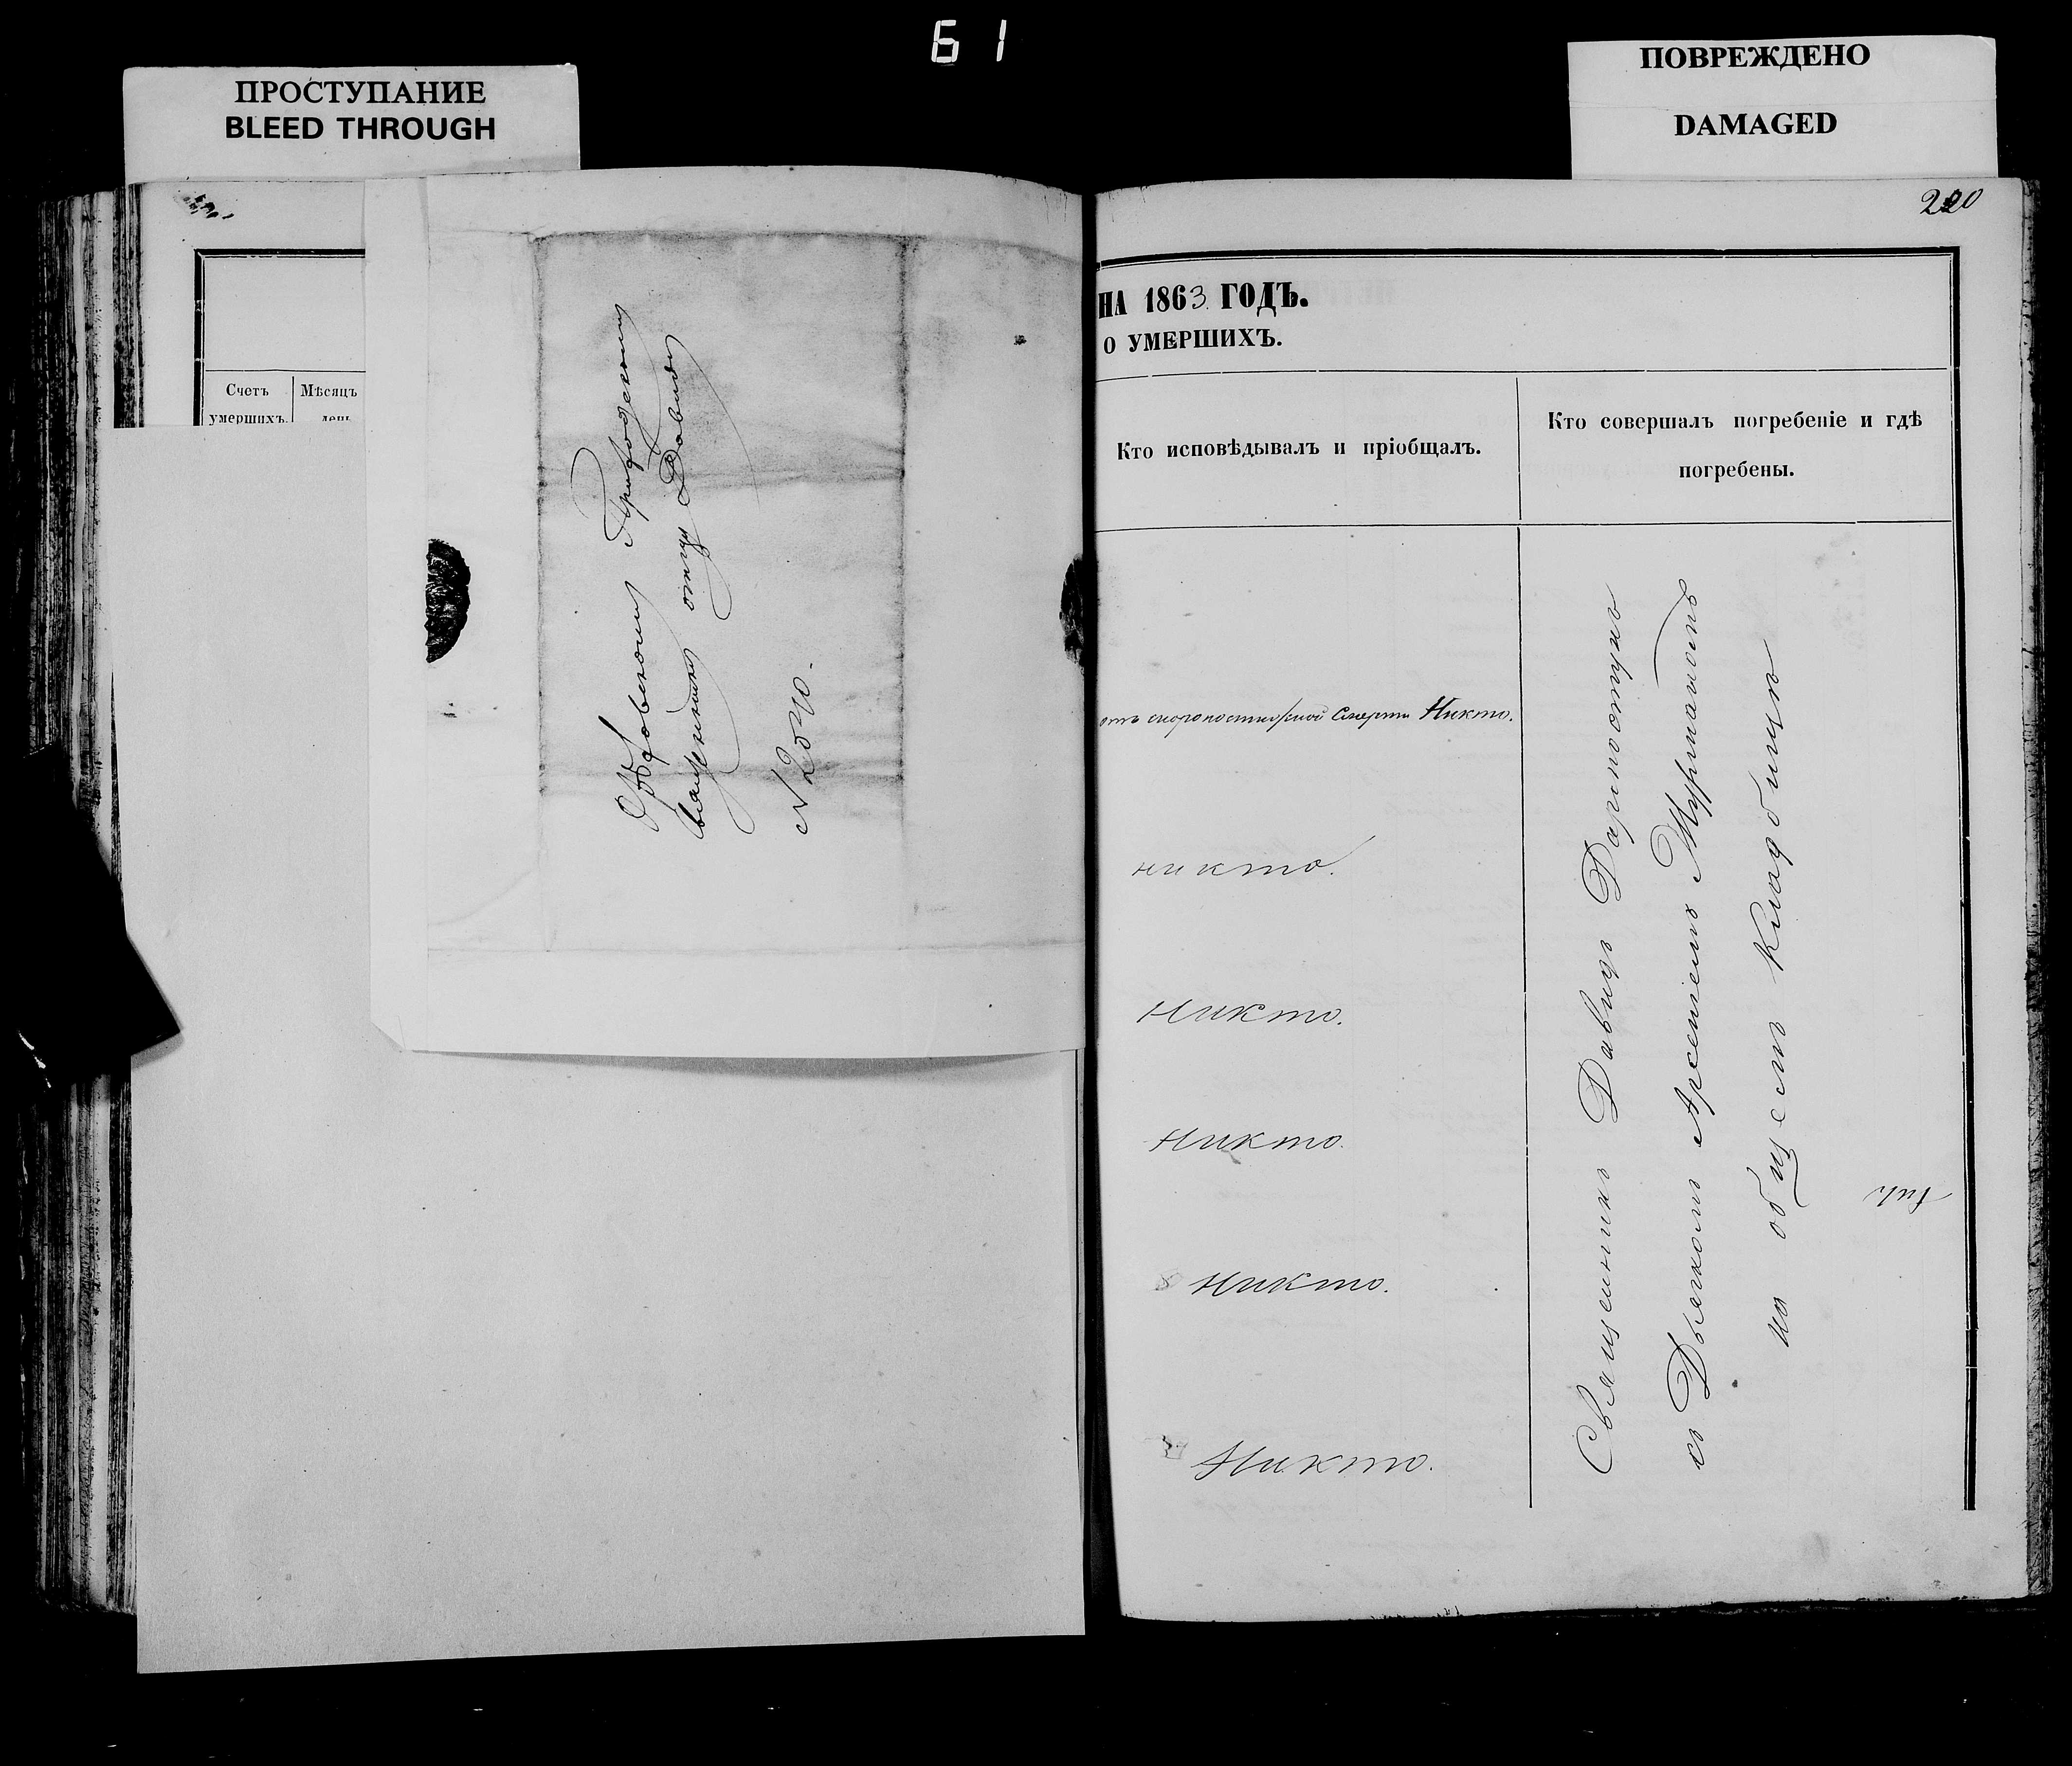 61
ПРОСТУПАНИЕ
BLEED THROUGH
ПОВРЕЖДЕНО
DAMAGED
Счетъ
умершихъ.
Мѣсяцъ
день
Приходскому
священнику отцу Давиду
N 2540.
220
НА 1863 ГОДЪ.
О УМЕРШИХЪ.
Кто исповѣдывалъ и пріобщалъ.
Кто совершалъ погребеніе и гдѣ
погребены.
отъ скоропостижной смерти Никто.
никто.
Никто.
Никто.
Никто.
Никто.
Священникъ Давидъ
съ Дьячкомъ Арсеніемъ
на общемъ кладбищѣ